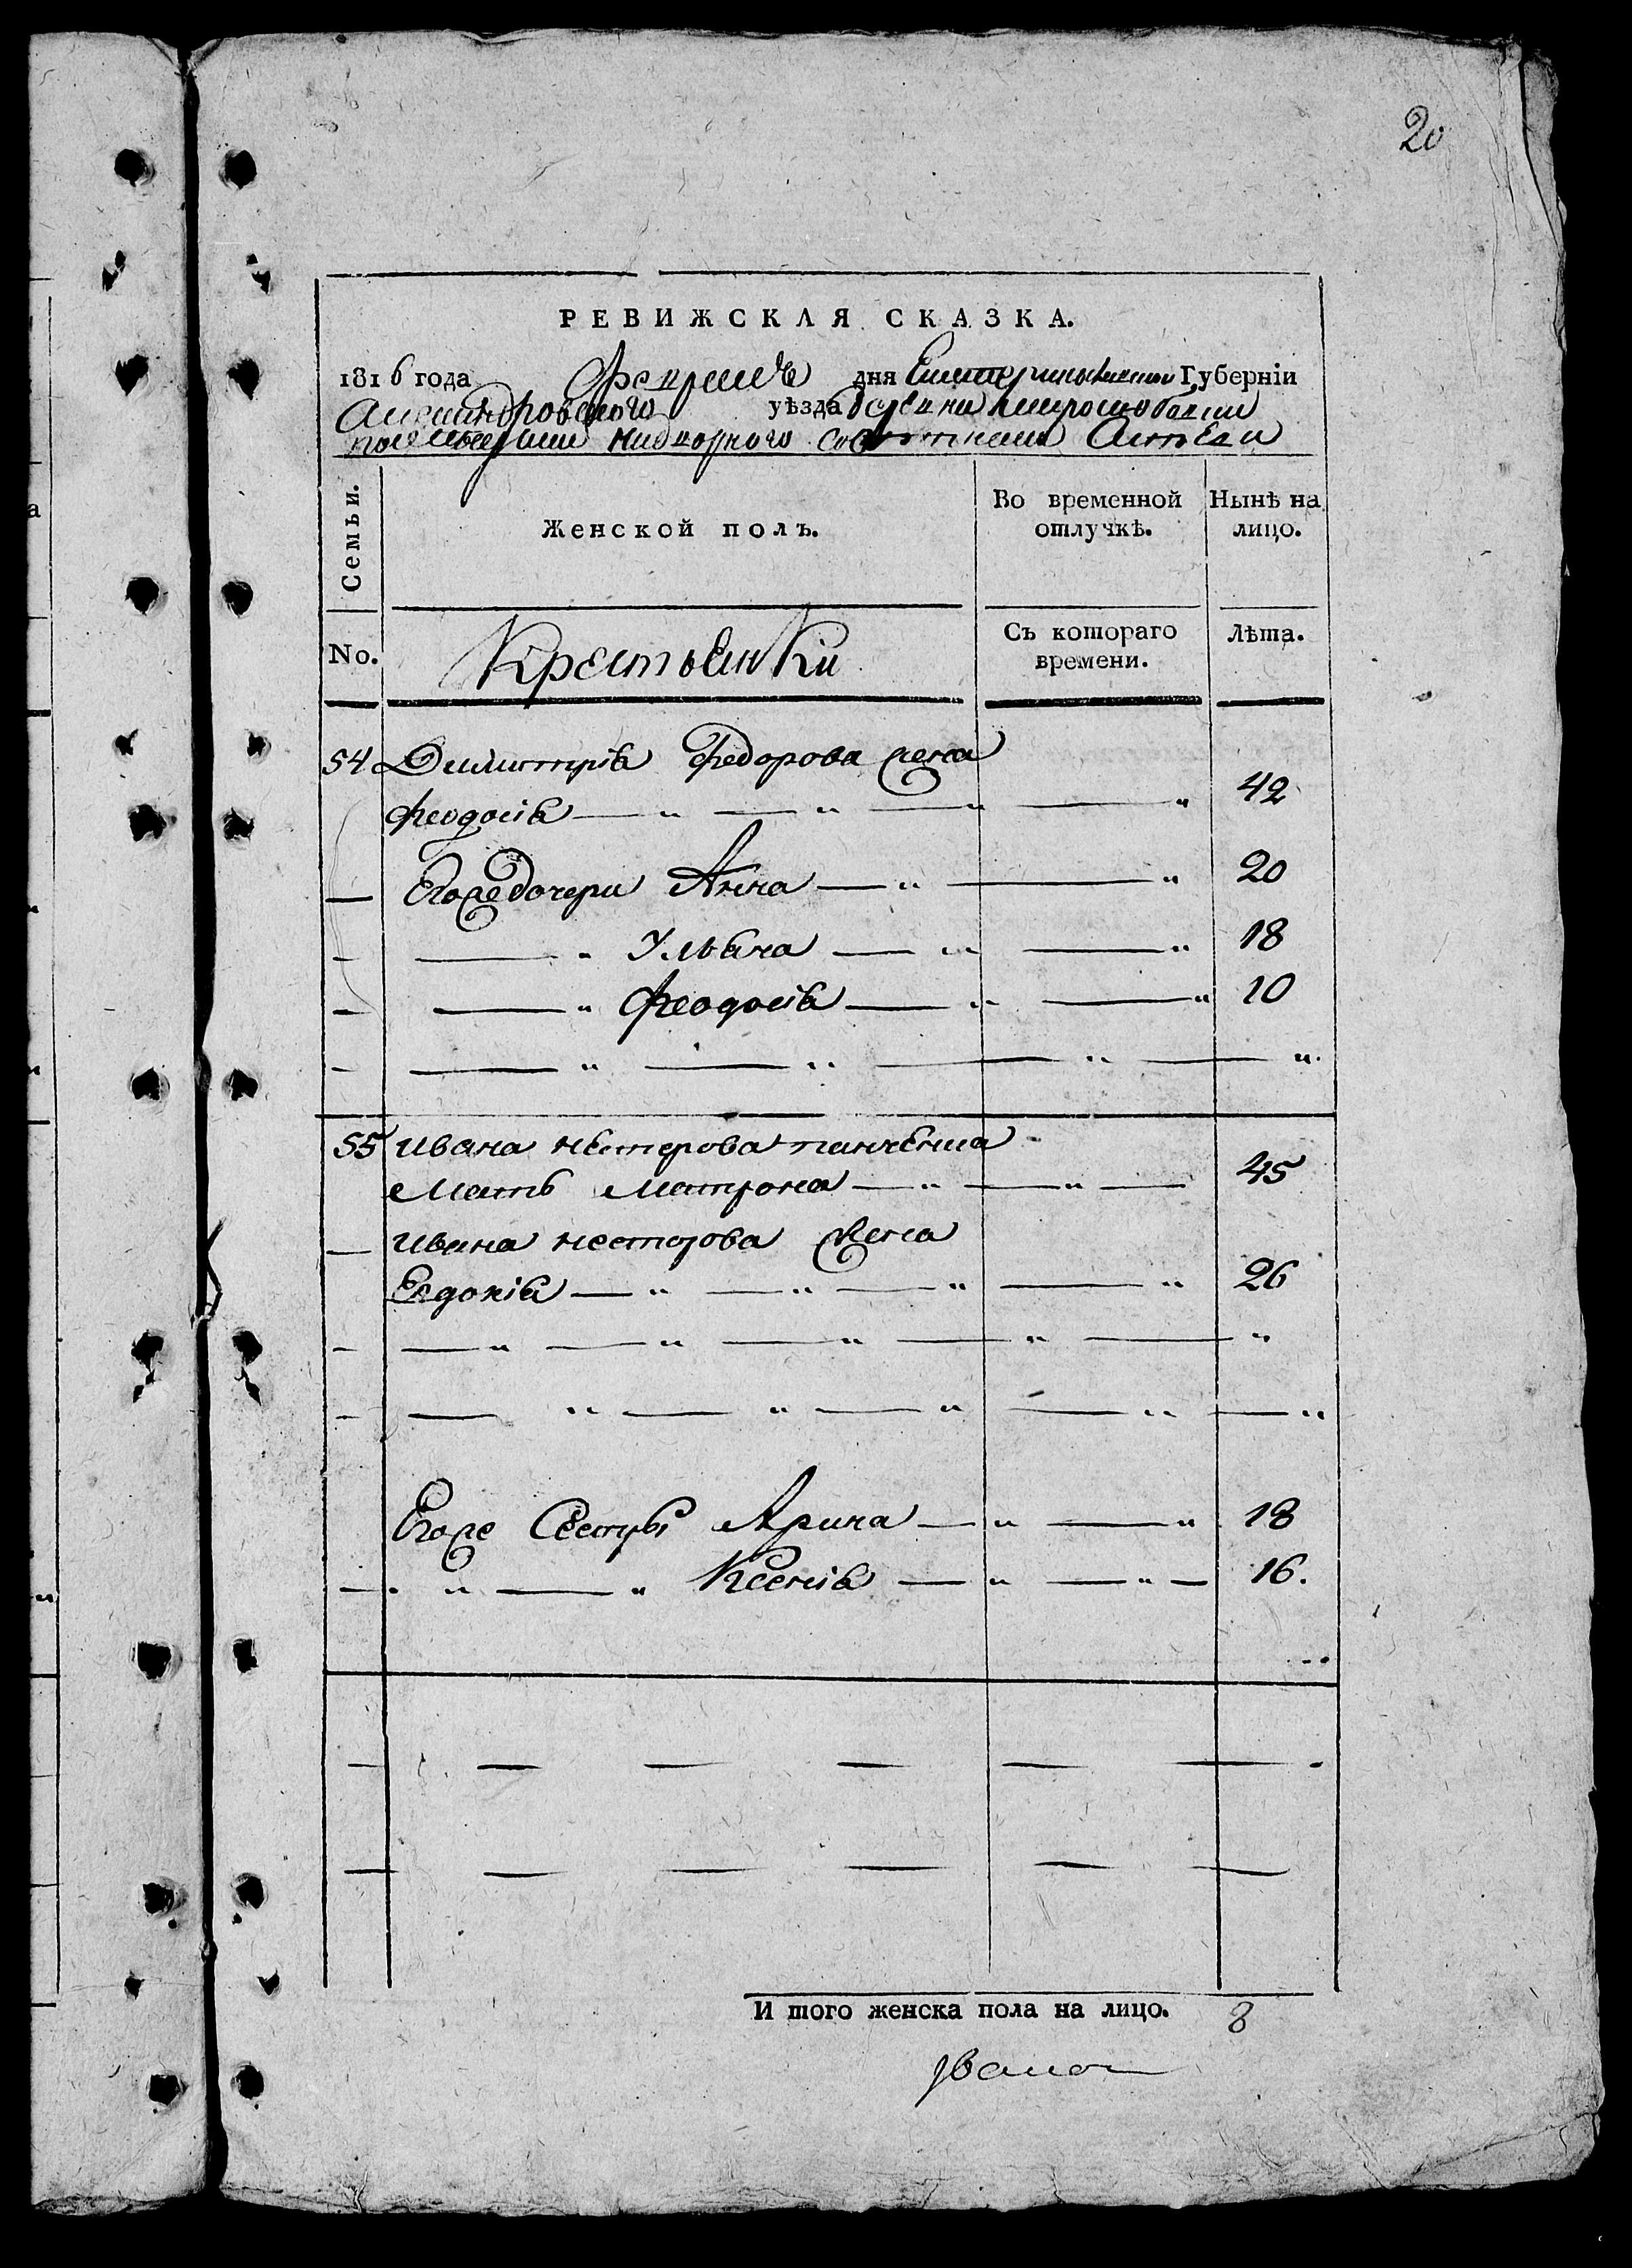 20
РЕВИЖСКАЯ СКАЗКА.
1816 года Февраля дня Екатеринославской Губерніи
Александровского уѣзда
надворного
Семьи.
Женской полъ.
Во временной отлучкѣ.
Нынѣ на лицо.
No.
Крестьянки
Съ котораго времени.
Лѣта.
54 Димитрія Федорова жена
Феодосія — " — " — " — " 42
— Егоже дочери Анна — " — " 20
— — " Ульяна — " — " 18
— — " Феодосія — " — " 10
— — " — " — " — "
55 Ивана Нестерова панченка
Мать Матрона — " — " — 45
— Ивана Нестерова жена
Евдокія — " — " — " — " 26
— — " — " — " — " — "
— — " — " — " — " — "
Егоже Сестры Арина — " — " 18
— " — " Ксенія — " — " — 16.
— — — — — —
— — — — — —
И того женска пола на лицо. 8